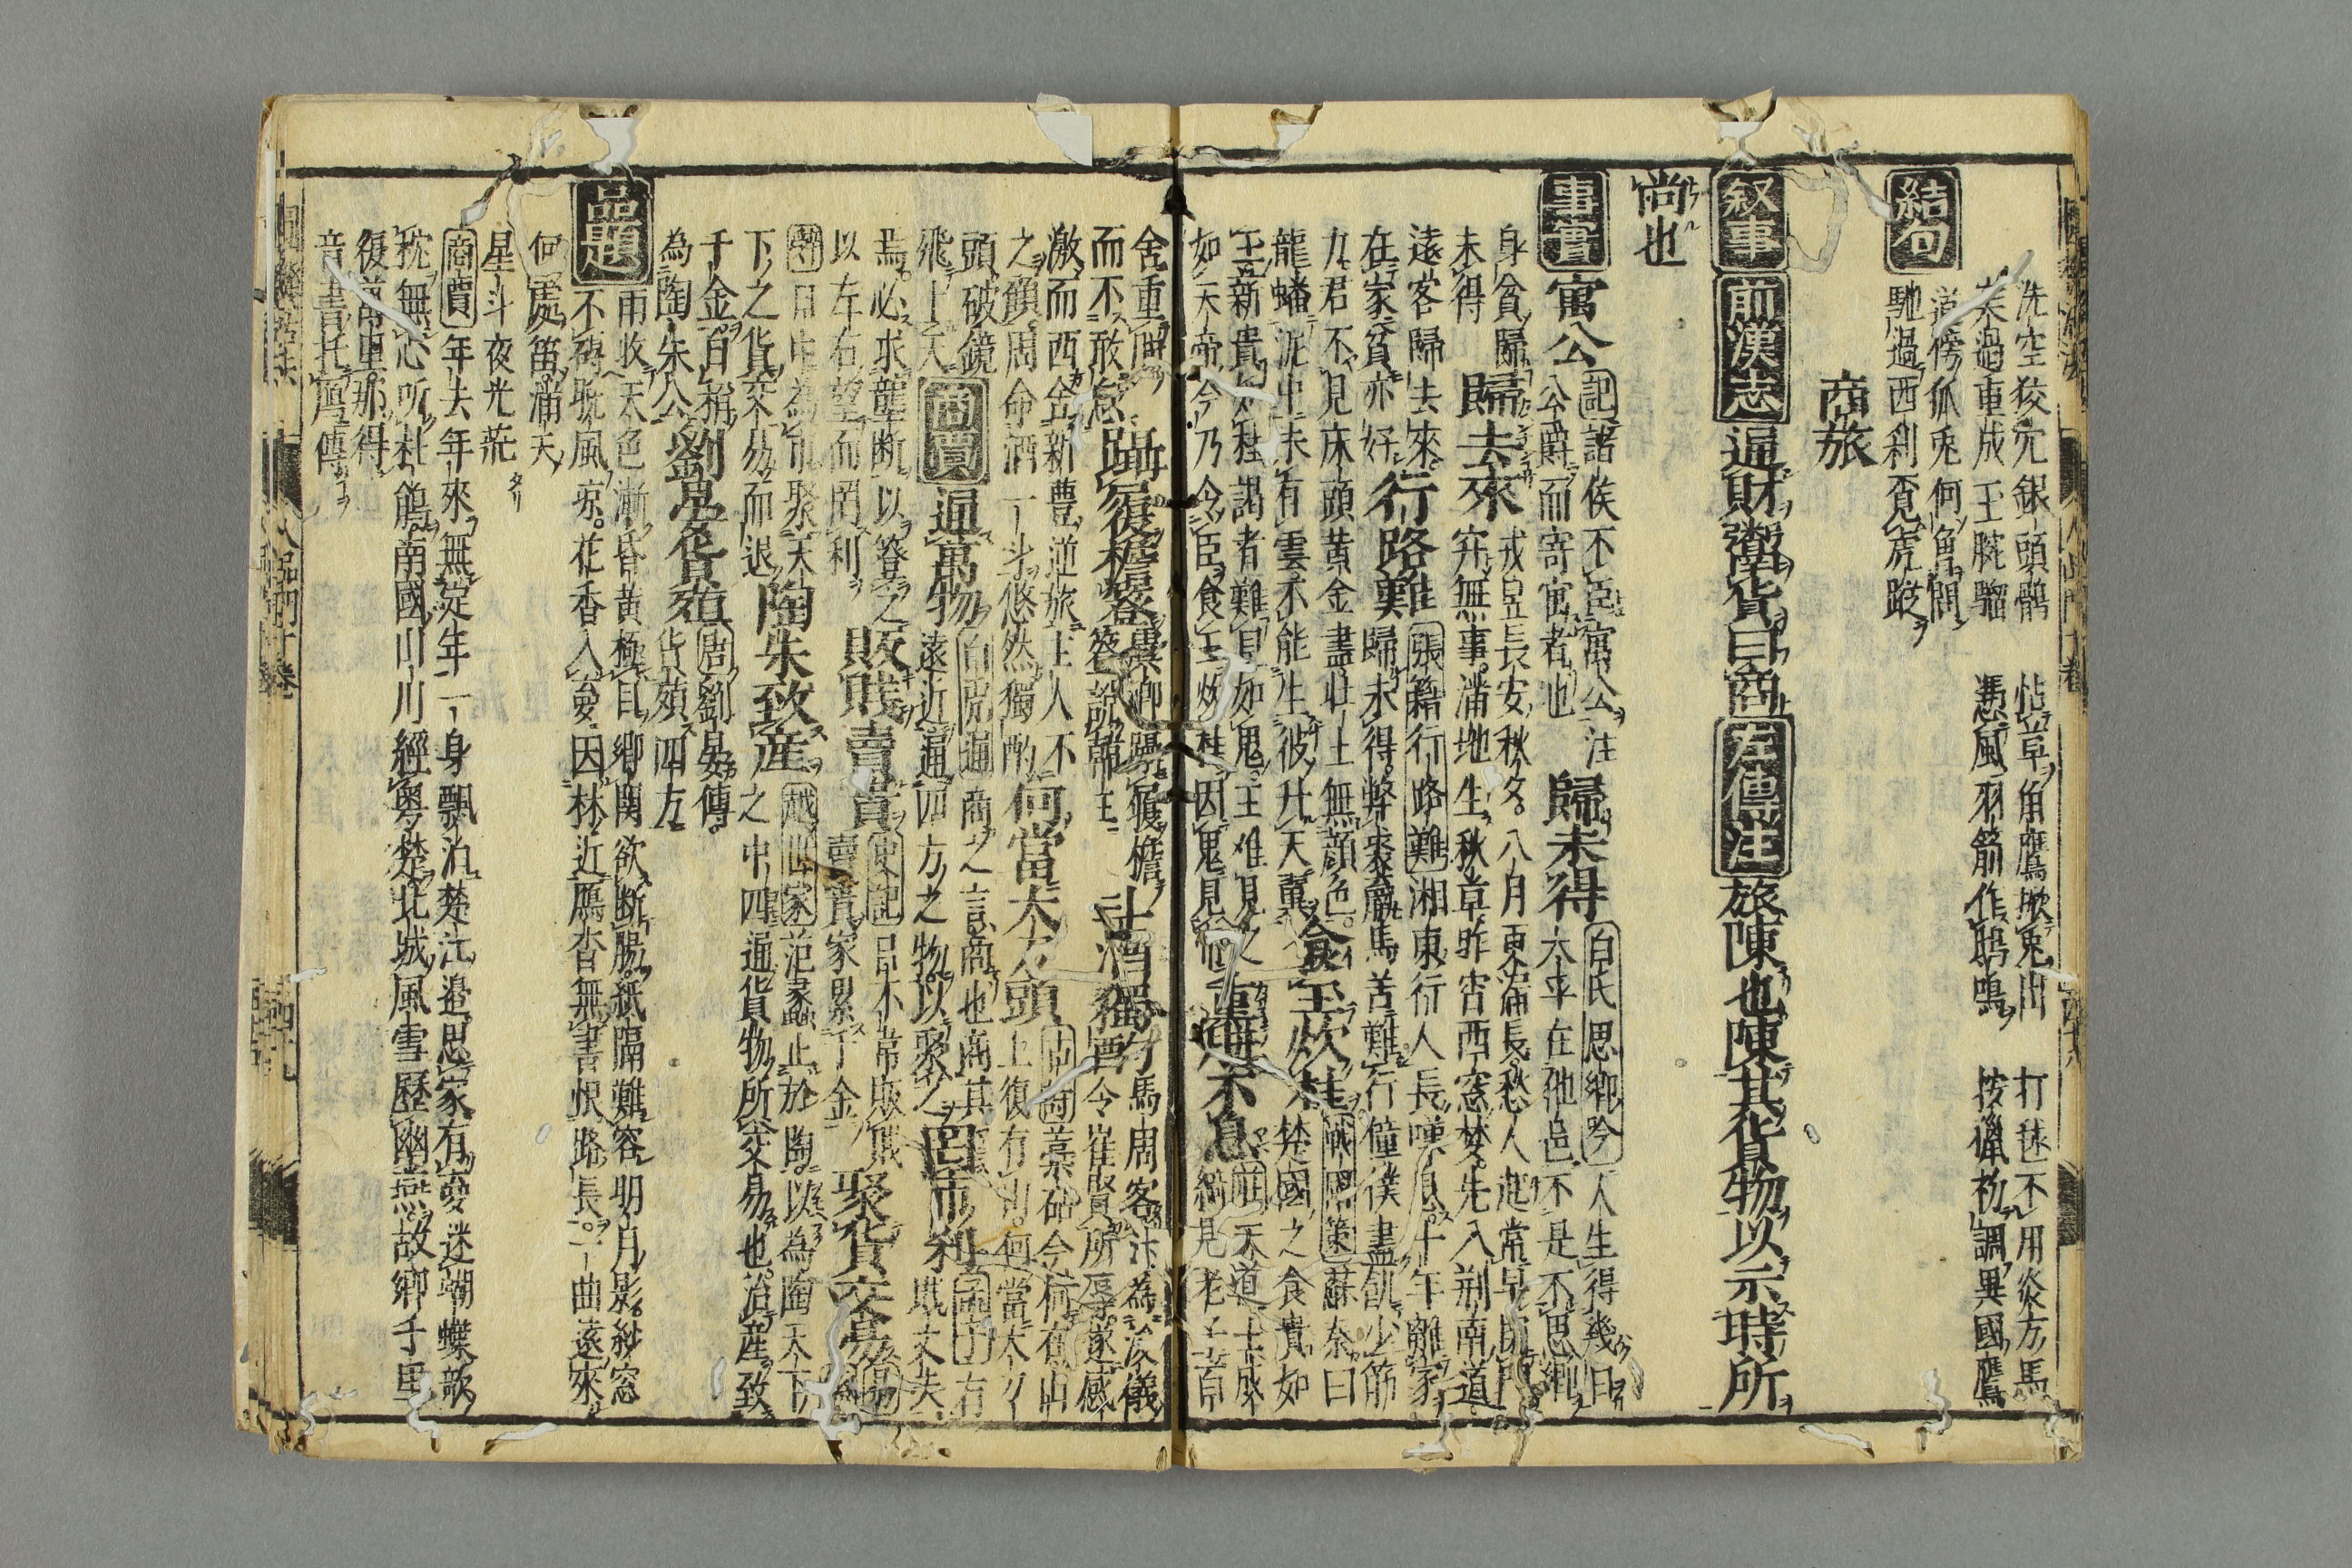 洗空狡穴銀頭鶻 怗草角鷹掀兎出 打毬不用炎方馬
結句
過重成王腕騮 憑風羽箭作鴟鳴 按獵初調異國鷹
道傍孤兎何傳
馳過西利覓虎蹤
商旅
叙事 前漢志 通財鬻貨曰商 左傳注 旅陳也陳其貨物以示時所
尚也
事實 寓公 記諸侯不臣寓公注
公爵而寄寓者也 歸未得 白氏思郷吟 人生得幾日
大半在他邑不是不思郷
身貧歸
未得 歸去來 戎昱長安秋夕八月更漏長愁人起常早閉門
寂無事滿地生秋草昨宵西窓梦先入荊南道
遠客歸去來
在家貧亦好 行路難 張籍行路難 湘東行人長嘆息十年離家
歸未得弊裘羸馬苦難行僮僕盡飢少筋
力君不見床頭黄金盡壮士無顔色
龍蟠泥中未有雲不能生彼升天翼 食玉炊桂 戰國策 蘇秦曰
楚國之食貴如
玉薪貴如桂謁者難見如鬼王难見之
如天帝今乃令臣食玉炊桂因鬼見帝 重趼不息 莊 天道 士成
綺見老子百
舍重趼
而不敢息 躡履檐簦 虞卿躡履檐
簦説趙王 斗酒獨酌 馬周客汴為浚儀
令崔賢所辱遂感
激而西舎新豊逆旅主人不
之顧周命酒一斗悠然獨酌 何當大刀頭 古詩 藁砧今何在山
上復有山何當大刀
頭破鏡
飛上天 商賈 通萬物 白虎通 商之言商也商其
遠近通四方之物以聚之 罔市利 孟子 有
賤丈夫
焉必求龍断以登之
以左右望而罔利 販賤賣貴 史記 吕不韋販賤
賣貴家累千金 聚貨交易 易
繋 日中為市聚天
下之貨交易而退 陶朱致産 越世家 范蠡止於陶以為陶天下
之中四通貨物所交易也治産致
千金百稱
為陶朱公 劉晏貨殖 唐劉晏傳
貨殖四方
品題 雨收天色漸昏黄極目郷関欲断腸紙隔難容明月影紗窓
不礙耽風凉花香入夢因林近雁杳無書恨路長一曲遠來
何處笛滿天
星斗夜光茫
商賈 年去年來無定年一身飄泊楚江邉思家有夢迷蝴蝶欹
枕無心听杜鵑南國川川經粤楚北城風雪歷幽燕故郷千里
復萬重那得
音書托鴈傳